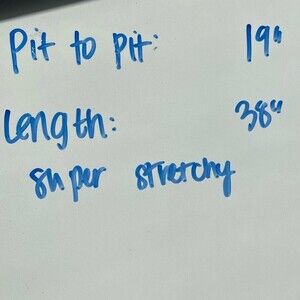 Pit to pit: 19"
Length: 38"
super stretchy